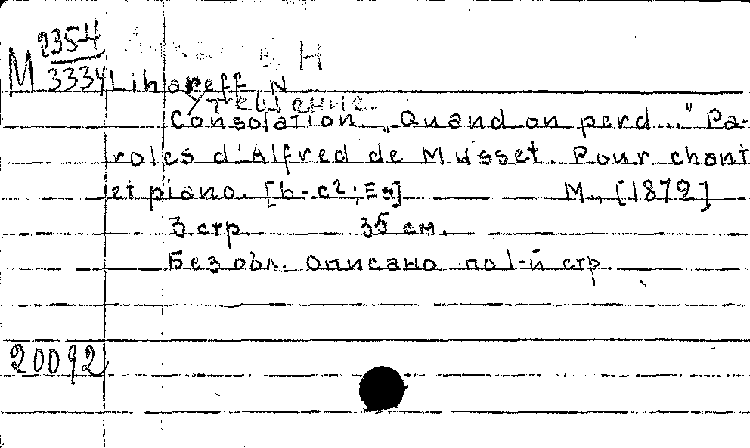 М 2354
3334 Lihareff N
Утешение.
Consolation „Quand on perd..." Pa-
roles d'Alfred de Musset. Pour chant
et piano. [b-c²; Es] М., [1872]
3 стр 35 см.
Без обл. Описано по 1-й стр
20092